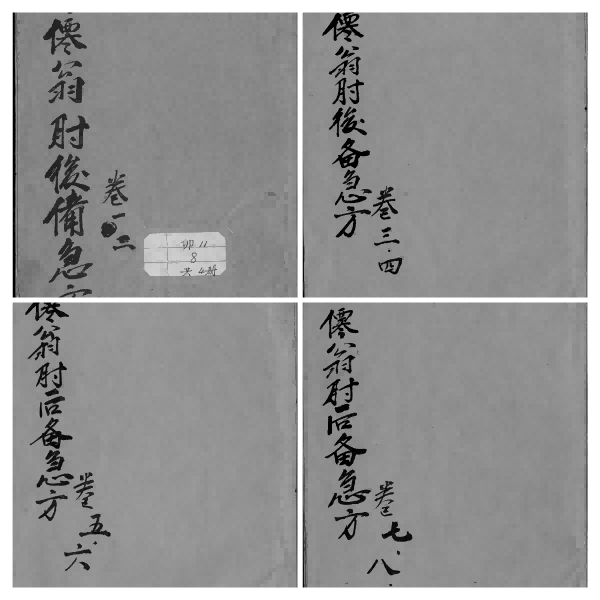 僊翁肘後備急方
卷一.二
叩 11
8
共4册
僊翁肘後备急方
卷三.四
僊翁肘后备急方
卷五.六
僊翁肘后备急方
卷七.八